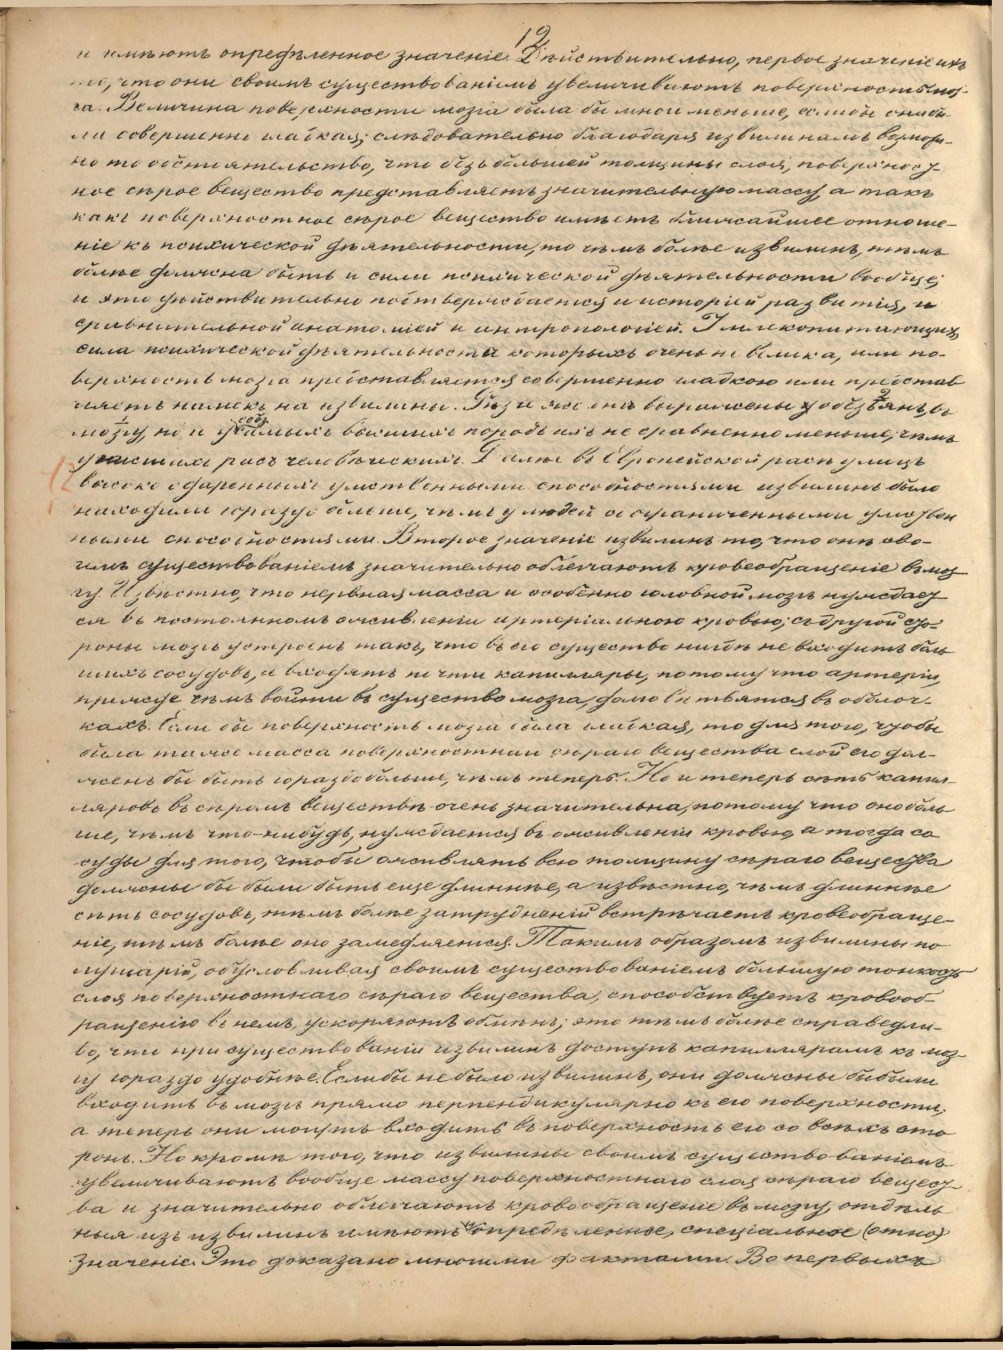 19
и имѣютъ опредѣленное значеніе. Дѣйствительно, первое значеніе ихъ
то, что они своимъ существованіемъ увеличиваютъ поверхность моз-
га. Величина поверхности мозга была бы много меньше, еслибы она бы-
ла совершенно гладкая; слѣдовательно благодаря извилинамъ возмож-
но то обстоятельство, что безъ большей толщины слоя, поверхност-
ное сѣрое вещество представляетъ значительную массу, а такъ
какъ поверхностное сѣрое вещество имѣетъ ближайшее отноше-
ніе къ психической дѣятельности, то чѣмъ болѣе извилинъ, тѣмъ
болѣе должна быть и сила психической дѣятельности вообще;
и это дѣйствительно подтверждается и исторіей развитія, и
сравнительной анатоміей и антропологіей. У млекопитающихъ,
сила психической дѣятельности которыхъ очень не велика, или по-
верхность мозга представляется совершенно гладкою или представ-
ляетъ намекъ на извилины. Рѣзче же они выражены у обезьянъ въ
мозгу, но и у самыхъ высшихъ породъ ихъ не сравненно меньше, чѣмъ
у низшихъ расъ человѣческихъ. Далѣе въ Европейской расѣ у лицъ
высоко одаренныхъ умственными способностями извилинъ было
находили гораздо больше, чѣмъ у людей съ ограниченными умствен
ными способностями. Второе значеніе извилинъ то, что онѣ сво-
имъ существованіемъ значительно облегчаютъ кровеобращеніе въ моз-
гу. Извѣстно, что нервная масса и особенно головной мозгъ нуждает
ся въ постоянномъ оживленіи артеріальною кровью; съ другой сто-
роны мозгъ устроенъ такъ, что въ его существо нигдѣ не входитъ боль
шихъ сосудовъ, а входятъ почти капилляры, потому что артеріи,
прежде чѣмъ войти въ существо мозга, долго вѣтвятся въ оболоч-
кахъ. Если бы поверхность мозга была гладкая, то для того, чтобы
была таже масса поверхностнаго сѣраго вещества слой его дол-
женъ бы быть гораздо больше, чѣмъ теперь. Но и теперь сѣть капил-
ляровъ въ сѣромъ веществѣ очень значительна, потому что оно боль
ше, чѣмъ что-нибудь, нуждается въ оживленіи кровью, а тогда со
суды для того, чтобы оживлять всю толщину сѣраго вещества
должны бы были быть еще длиннѣе, а извѣстно, чѣмъ длиннѣе
сѣть сосудовъ, тѣмъ болѣе затрудненій встрѣчаетъ кровеобраще-
ніе, тѣмъ болѣе оно замедляется. Такимъ образомъ извилины по
лушарій, обусловливая своимъ существованіемъ большую тонкость
слоя поверхностнаго сѣраго вещества, способствуетъ кровооб-
ращенію въ немъ, ускоряютъ обмѣнъ; это тѣмъ болѣе справедли-
во, что при существованіи извилинъ доступъ капиллярамъ къ моз-
гу гораздо удобнѣе. Еслибы не было извилинъ, они должны бы были
входить въ мозгъ прямо перпендикулярно къ его поверхности,
а теперь они могутъ входить въ поверхность его со всѣхъ сто
ронъ. Но кромѣ того, что извилины своимъ существованіемъ
увеличиваютъ вообще массу поверхностнаго слоя сѣраго вещест
ва и значительно облегчаютъ кровообращеніе въ мозгу, отдѣль
ныя изъ извилинъ имѣютъ опредѣленное, спеціальное
значеніе. Это доказано многими фактами. Во первыхъ